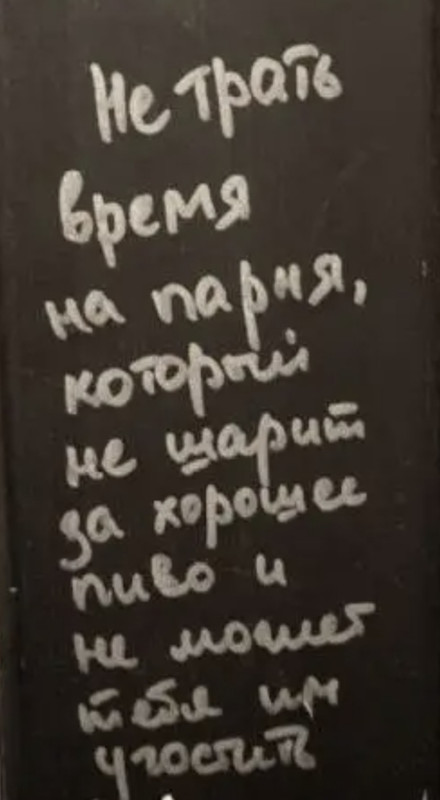 Не трать
время
на парня,
который
не шарит
за хорошее
пиво и
не может
тебя им
угостить